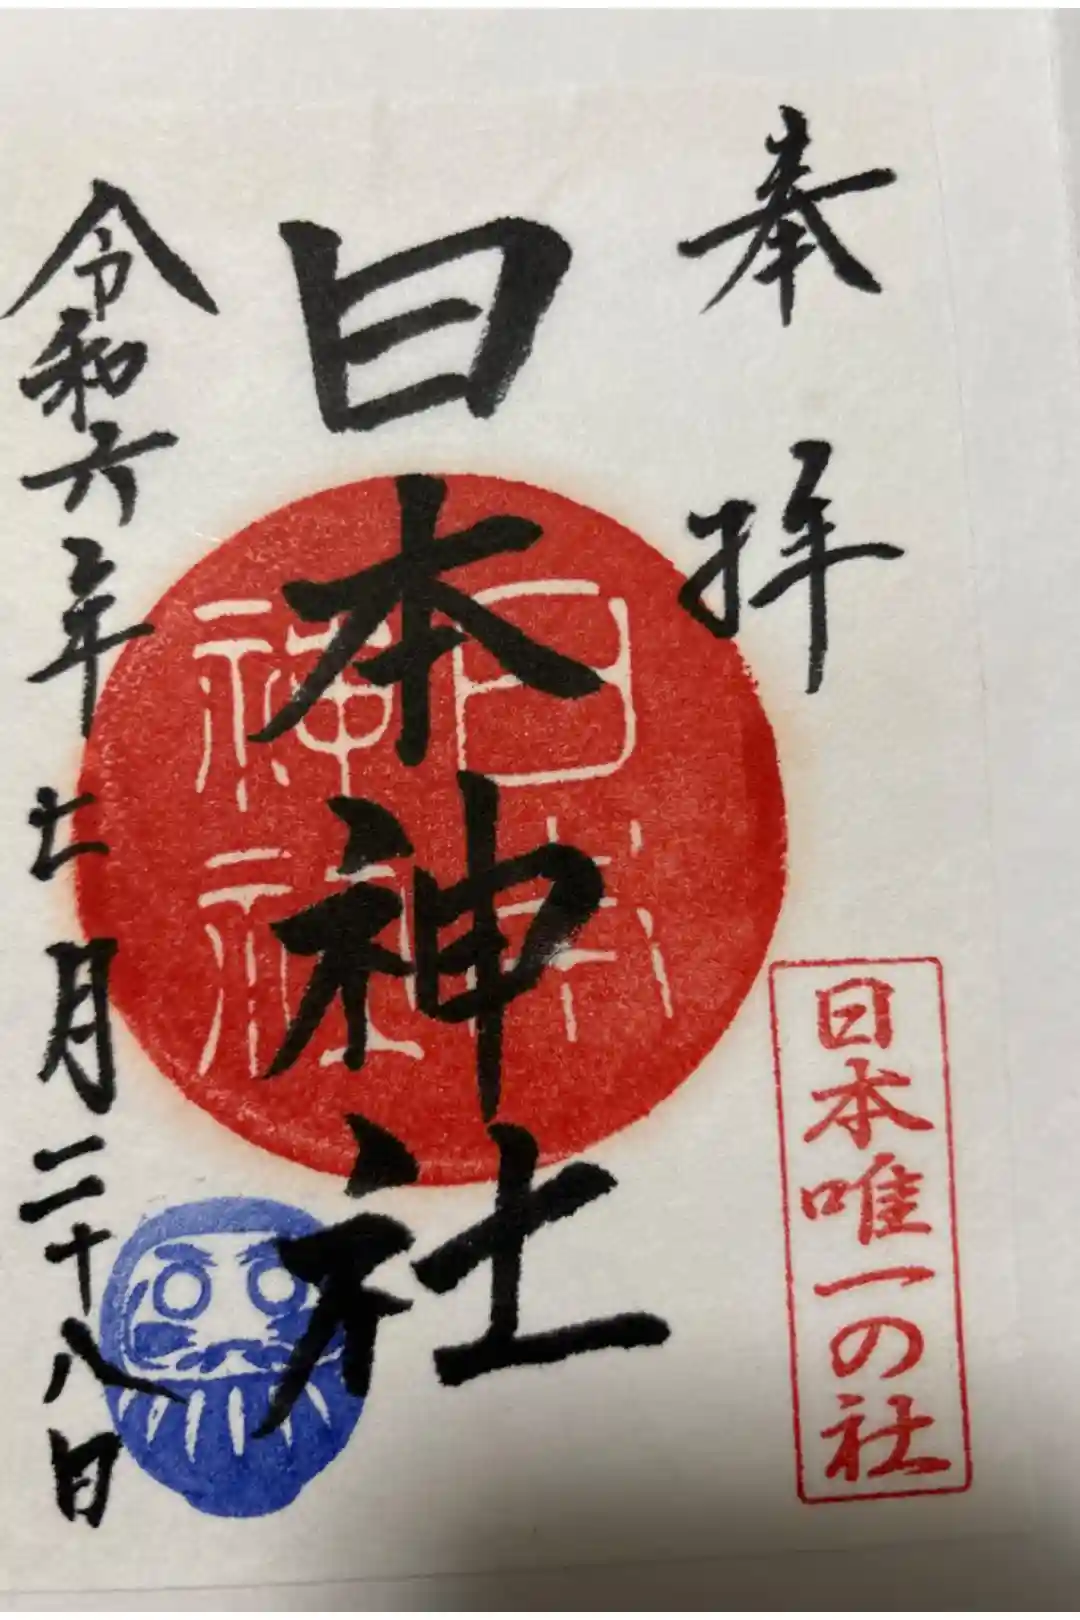 奉拝
日本唯一の社
日本神社
日本
神社
令和六年七月二十八日